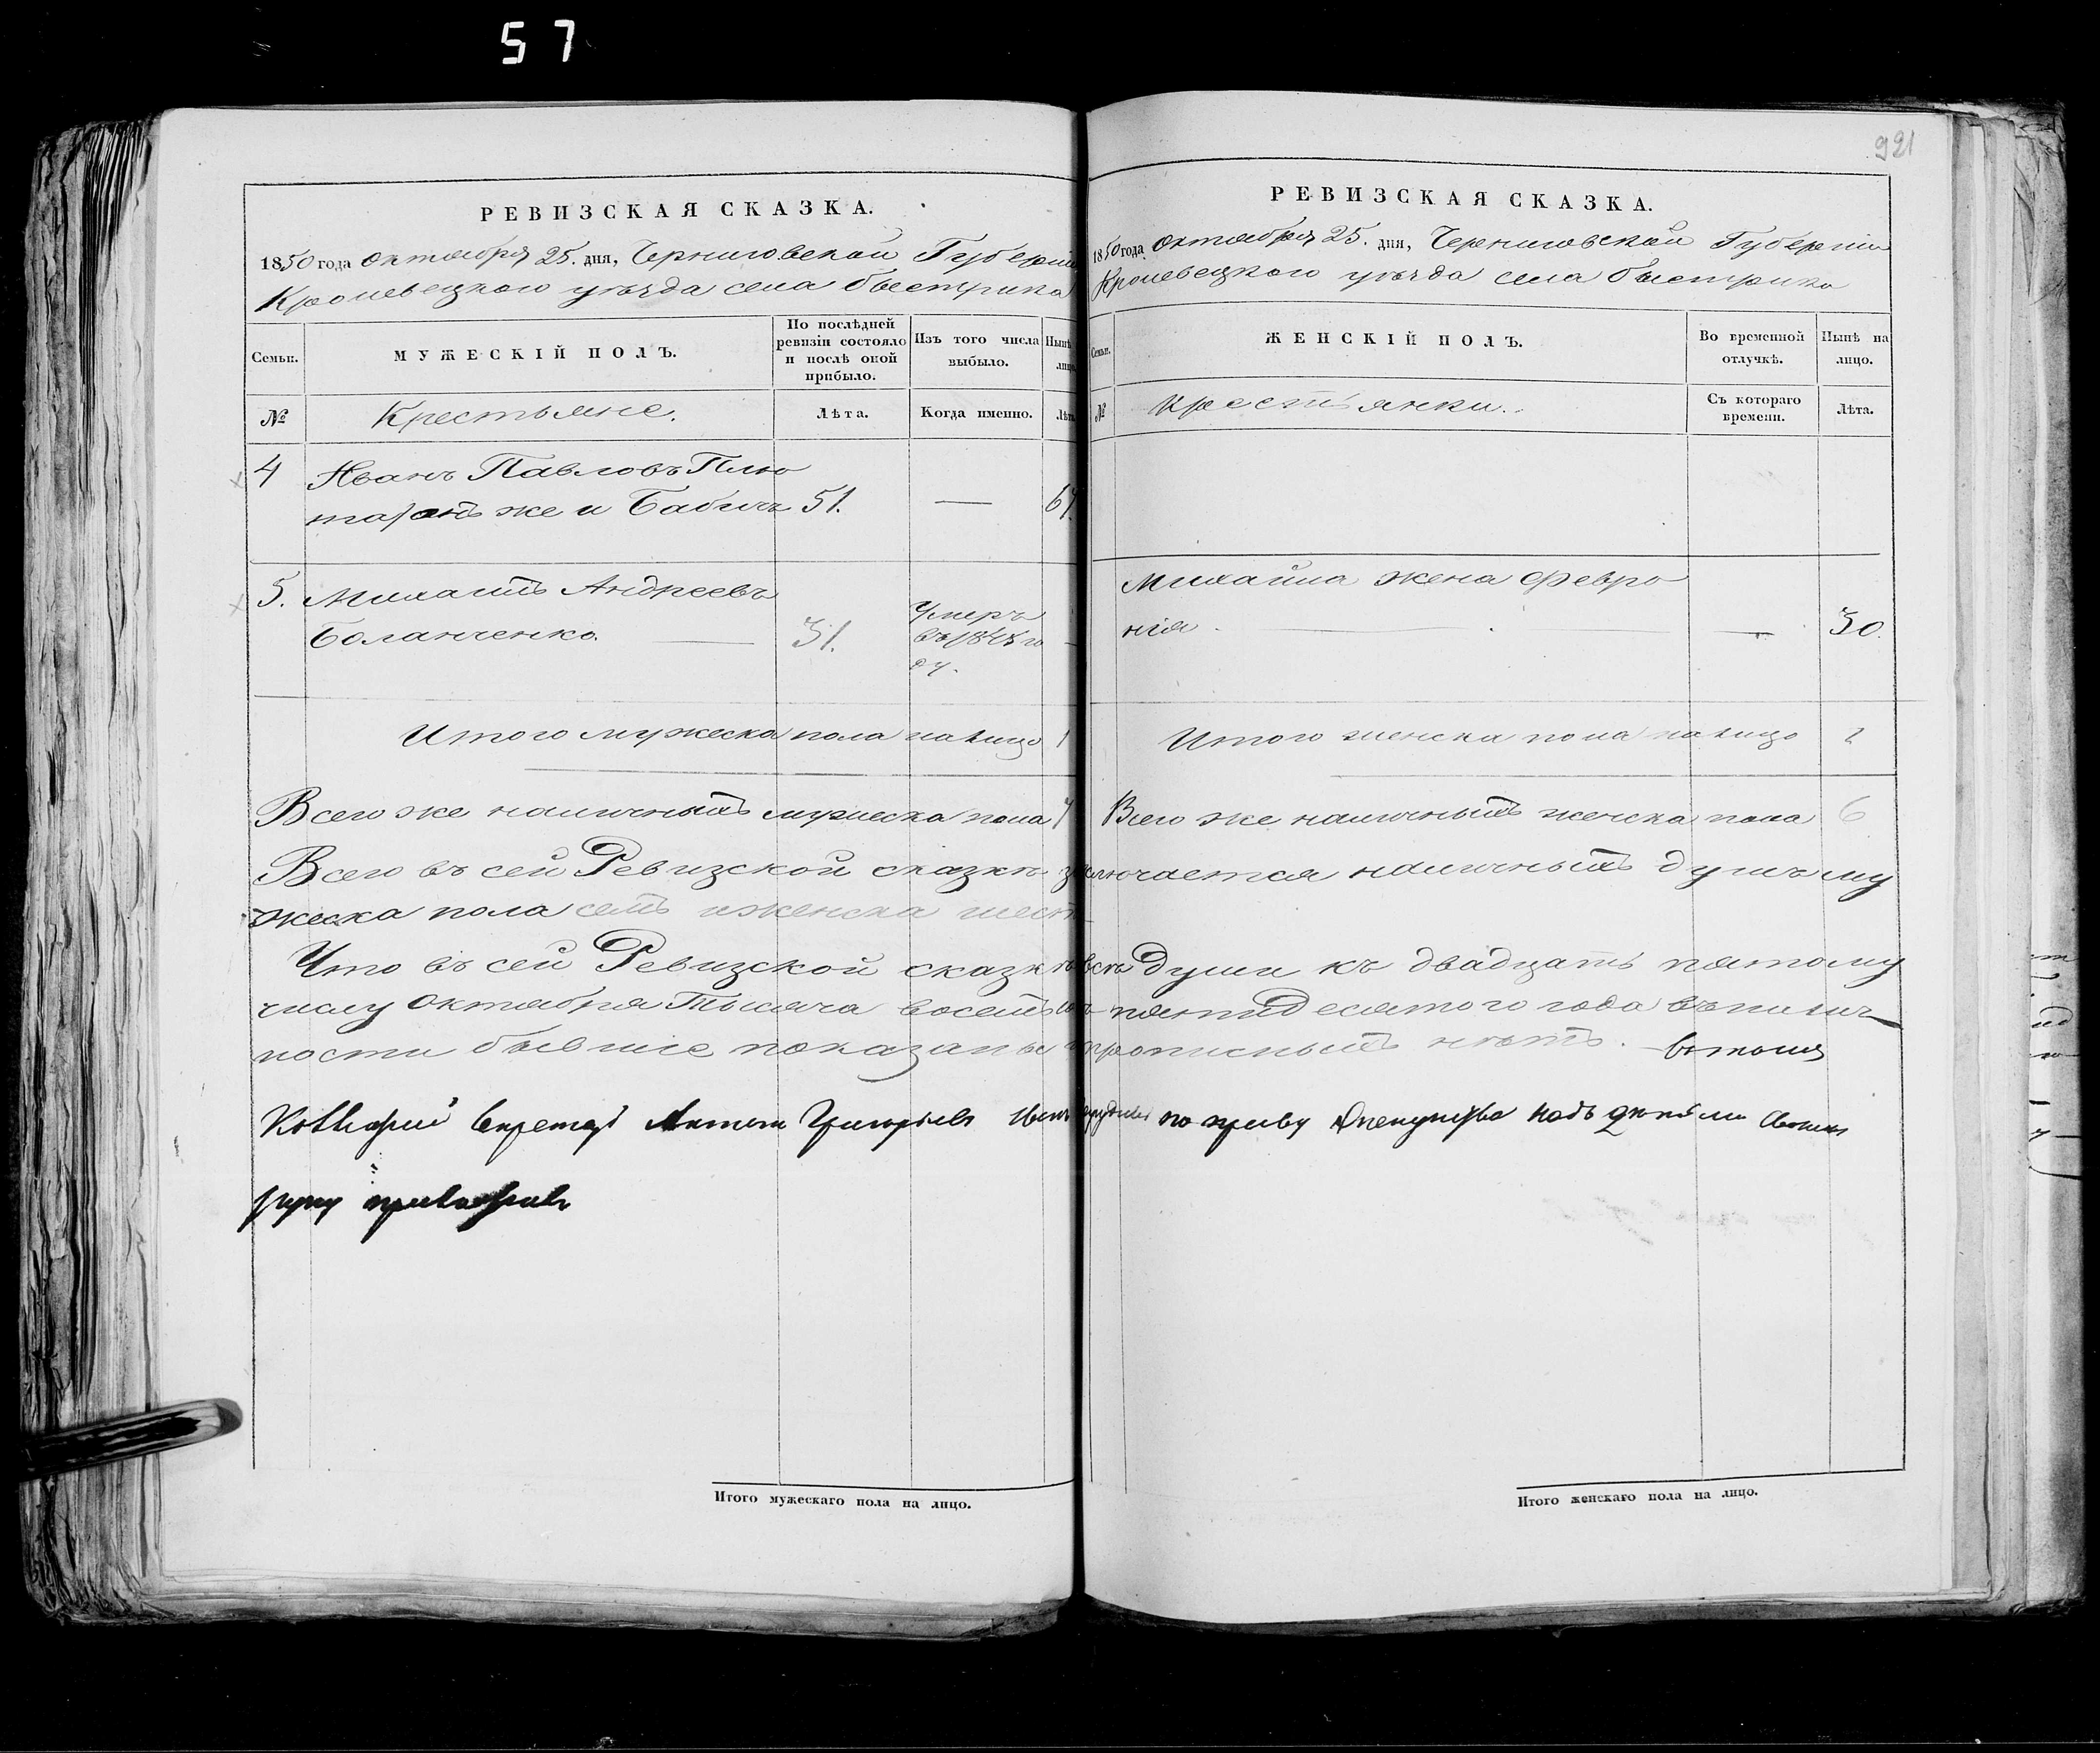 57
921
РЕВИЗСКАЯ СКАЗКА.
1850 года октября 25. дня, Черниговской Губерніи
Кролевецкого уѣзда села быстрика
Семьи.
МУЖЕСКІЙ ПОЛЪ.
По послѣдней ревизіи состояло и послѣ оной прибыло.
Изъ того числа выбыло.
Нынѣ лицо
№
Крестьяне.
Лѣта.
Когда именно.
Лѣта
4 Иванъ Павловъ Плю
же и Бабичъ 51. — 67.
5. Михаилъ Андреевъ
Боланченко. 31. Умеръ въ году. —
Итого мужеска пола налицо 1
Всего же наличныхъ мужеска пола 7
РЕВИЗСКАЯ СКАЗКА.
1850 года октября 25. дня, Черниговской Губерніи
Кролевецкого уѣзда села быстрика
Семьи.
ЖЕНСКІЙ ПОЛЪ.
Во временной отлучкѣ.
Нынѣ на лицо.
№
Крестьянки.
Съ котораго времени.
Лѣта.
Михайла жена Февро
нія — 30.
Итого женска пола налицо 2
Всего же наличныхъ женска пола 6
Всего въ сей Ревизской сказкѣ заключается наличныхъ душъ му
жеска пола семь и женска шесть
Что въ сей Ревизской сказкѣ всѣ души къ двадцать пятому
числу Октября Тысяча восемьсотъ пятидесятого года въ налич
ности бывшіе показаны и прописныхъ нѣтъ. въ томъ
Секретарь Антонъ Григорьевъ по праву Опекунства надъ дѣтьми своими
руку приложилъ
Итого мужескаго пола на лицо.
Итого женскаго пола на лицо.